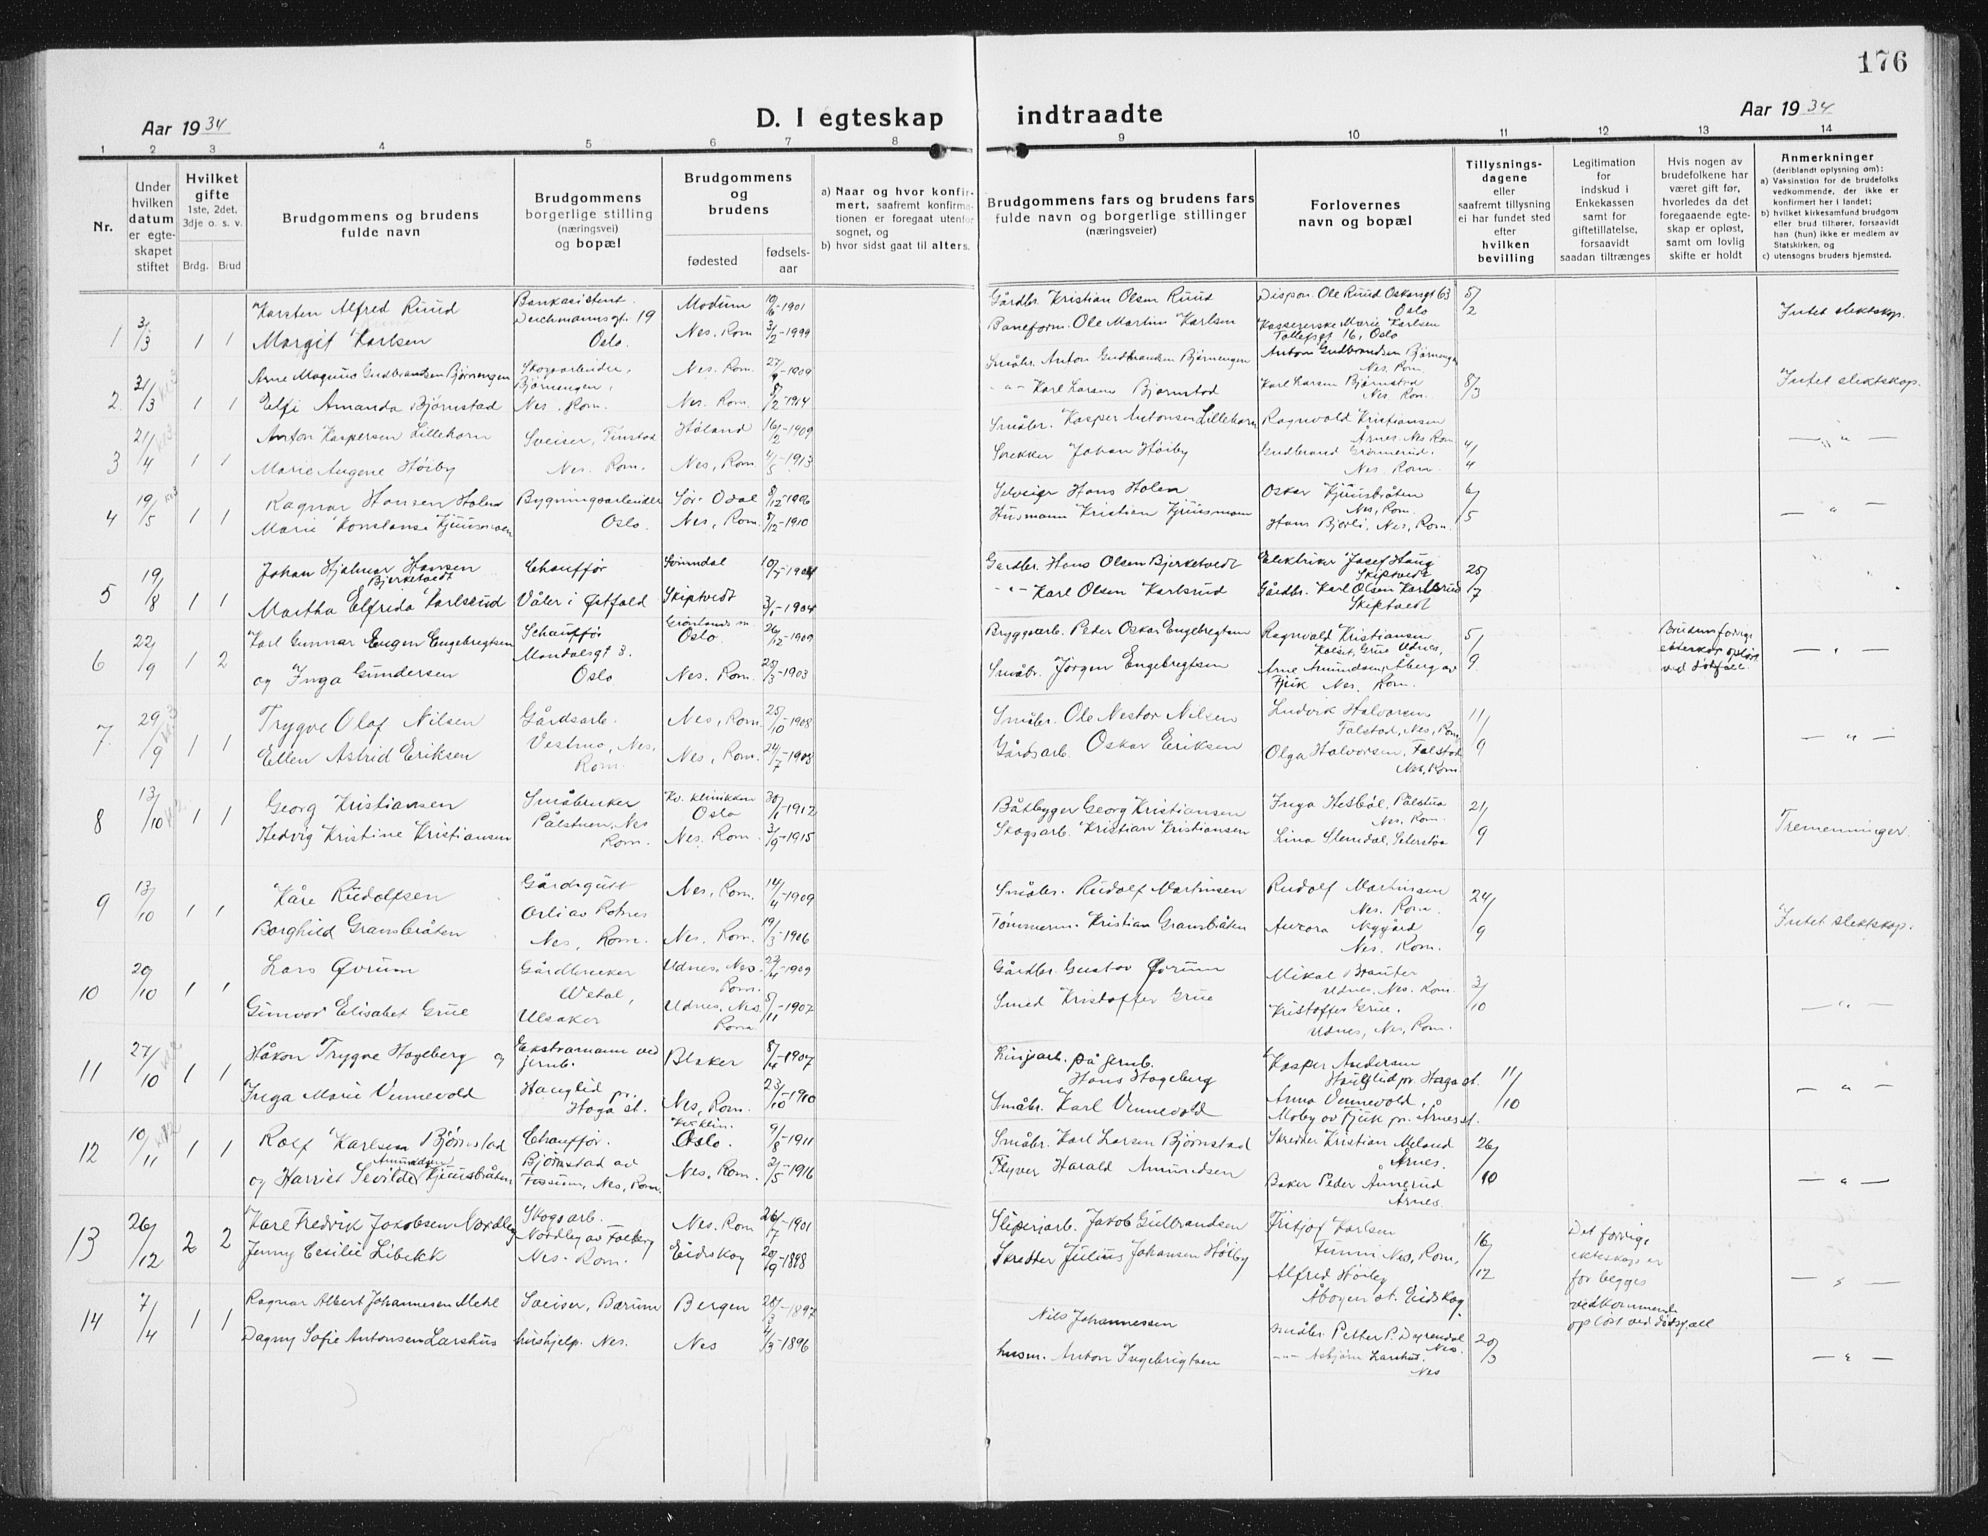 176
Aar 1934
D. I egteskap indtraadte
Aar 1934
1 2 3 4 5 6 7 8 9 10 11 12 13 14
Nr.
Under hvilken datum er egteskapet stiftet
Hvilket gifte
1ste, 2det, 3dje o. s. v.
Brdg. Brud
Brudgommens og brudens fulde navn
Brudgommens borgerlige stilling (næringsvei) og bopæl
Brudgommens og brudens
fødested
fødselsaar
a) Naar og hvor konfirmert, saafremt konfirmationen er foregaat utenfor sognet, og
b) hvor sidst gaat til alters.
Brudgommens fars og brudens fars fulde navn og borgerlige stillinger (næringsveier)
Forlovernes navn og bopæl
Tillysningsdagene eller saafremt tillysning ei har fundet sted efter hvilken bevilling
Legitimation for indskud i Enkekassen samt for giftetillatelse, forsaavidt saadan tiltrænges
Hvis nogen av brudefolkene har været gift før, hvorledes da det foregaaende egteskap er opløst, samt om lovlig skifte er holdt
Anmerkninger
(deriblandt oplysning om):
a) Vaksination for de brudefolks vedkommende, der ikke er konfirmert her i landet;
b) hvilket kirkesamfund brudgom eller brud tilhører, forsaavidt han (hun) ikke er medlem av Statskirken, og
c) utensogns bruders hjemsted.
1 3/3 1 1 Karsten Alfred Ruud Bankasistent Deichmannsgt. 19 Oslo. Modum 19/6-1901 Gårdbr. Kristian Olsen Ruud Dispon. Ole Ruud Oskarsgt 63 Oslo 5/2 Intet slektskap.
Margit Karlsen Nes, Rom 3/2-1999 Baneform. Ole Martin Karlsen Kassererske Marie Karlsen Toftesgt 16, Oslo
2 31/3 1 1 Arne Magnus Gudbrandsen Bjørnengen Skogsarbeider, Bjørnengen, Nes. Rom. Nes. Rom. 27/9-1909 Småbr. Anton Gudbrandsen Bjørnengen Anton Gudbrandsen Bjørnengen Nes. Rom. 8/3 Intet slektskap.
Elfi Amanda Bjørnstad Nes. Rom. 8/2-1914 -"- Karl Larsen Bjørnstad Karl Larsen Bjørnstad Nes. Rom.
3 21/4 1 1 Anton Kaspersen Lillehorn Sveiser, Finstad Nes. Rom. Høland 16/2-1909 Småbr. Kasper Antonsen Lillehorn Ragnvald Kristiansen Årnes Nes Rom 4/4 — " —
Marie Augene Høiby Nes, Rom 4/5-1913 Snekker Johan Høiby Gudbrand Grønnerud. Nes. Rom.
4 19/5 1 1 Ragnar Hansen Holen Bygningsarbeider Oslo. Sør-Odal 8/12-1906 Selveier Hans Holen Oskar Kjuusbråten Nes, Rom. 6/5 — " —
Marie Konstanse Kjuusmoen Nes, Rom. 8/12-1910 Husmann Kristian Kjuusmoen Hans Bjørli, Nes, Rom.
5 19/8 1 1 Johan Hjalmar Hansen Bjerketvedt Chauffør Våler i Østfold Svinndal 10/7-1904 Gardbr. Hans Olsen Bjerketvedt Elektriker Josef Haug Skiptvedt 25/7
Martha Elfrida Karlsrud Skiptvedt 3/1-1904 -"- Karl Olsen Karlsrud Gårdbr. Karl Olsen Karlsrud Skiptvedt
6 22/9 1 2 Karl Gunnar Eugen Engebregtsen Schauffør Mandalsgt 3. Oslo Oslo. 26/12-1909 Bryggearb. Peder Oskar Engebregtsen Ragnvald Kristiansen Kolset, Grue Udnes, 5/9 Brudens forrige ekteskap opløst ved dødsfall — " —
og Inga Gundersen Nes. Rom. 20/3-1903 Småbr. Jørgen Engebregtsen Arne Amundsen, Åberg av Fjuk Nes. Rom.
7 29/9 1 1 Trygve Olaf Nilsen Gårdsarb. Vestmo, Nes, Rom. Nes, Rom. 25/10-1908 Småbr. Ole Nestor Nilsen Ludvik Halvorsen Falstad, Nes, Rom 11/9 — " —
Ellen Astrid Eriksen Nes, Rom. 24/7-1908 Gårdsarb. Oskar Eriksen Olga Halvorsen, Falstad Nes, Rom.
8 13/10 1 1 Georg Kristiansen Småbruker Pålstuen, Nes Rom. Kv. klinikken Oslo 30/1-1912 Båtbygger Georg Kristiansen Inga Hesbøl, Pålstua Nes. Rom. 21/9 Tremenninger.
Hedvig Kristine Kristiansen Nes. Rom. 3/9-1915 Skogsarb. Kristian Kristiansen Lina Slemdal, Seterstøa
9 13/10 1 1 Kåre Rudolfsen Gårdsgutt Orli av Rotnes Nes, Rom. Nes, Rom. 14/4-1909 Småbr. Rudolf Martinsen Rudolf Martinsen Nes. Rom. 24/9 Intet slektskap.
Borghild Gransbråten Nes. Rom. 19/3-1906 Tømmerm. Kristian Gransbråten Aurora Nygård Nes. Rom.
10 20/10 1 1 Lars Øvrum Gårdbruker Ulsaker Udnes, Nes. Rom. 1909 Gårdbr. Gustav Øvrum Mikal Brauter Udnes, Nes. Rom. 3/10 — " —
Gunvor Elisabet Grue Udnes, Nes. Rom. 8/11-1907 Smed Kristoffer Grue Kristoffer Grue. Udnes, Nes, Rom.
11 27/10 1 1 Håkon Trygve Hogeberg og Ekstramann ved jernb. Hauglid pr. Haga st. Blaker 8/4-1907 Linjearb. på Jernb. Hans Hogeberg Kasper Andersen Hauglid pr. Haga st. 11/10 — " —
Inga Marie Vennevold Nes, Rom. 23/10-1910 Småbr. Karl Vennevold Anna Vennevold, Moby av Fjuk pr. Årnes st.
12 10/11 1 1 Rolf Karlsen Bjørnstad Chauffør. Bjørnstad av Fossum, Nes, Rom. Kv.klin. Oslo. 9/8-1911 Småbr. Karl Larsen Bjørnstad Skredder Kristian Meland Årnes. 26/10 — " —
og Harriet Sevilde Amundsen Kjuusbråten Nes, Rom. 2/5-1916 Flyver Harald Amundsen Baker Peder Ånnerud Årnes.
13 26/12 2 2 Karl Fredrik Jakobsen Nordley Skogsarb. Nordley av Folberg Nes-Rom. Nes. Rom 26/7-1901 Sliperiarb. Jakob Gulbrandsen Fritjof Karlsen Funni Nes, Rom, 16/12 Det forrige ekteskap er for begges vedkommende opløst ved dødsfall — " —
Jenny Cesilie Libekk Eidskog 20/9-1898 Skredder Julius Johansen Høiby Alfred Høiby Åbogen st. Eidskog
14 7/4 1 1 Ragnar Albert Johannesen Mehl Sveiser, Bærum Bergen 20/3-1897 Nils Johannessen Småbr. Petter P. Dyrendal Nes. 20/3 — " —
Dagny Sofie Antonsen Larshus hushjelp. Nes. Nes 4/3-1896 husm. Anton Ingebrigtsen -"- Asbjørn Larshus. Nes